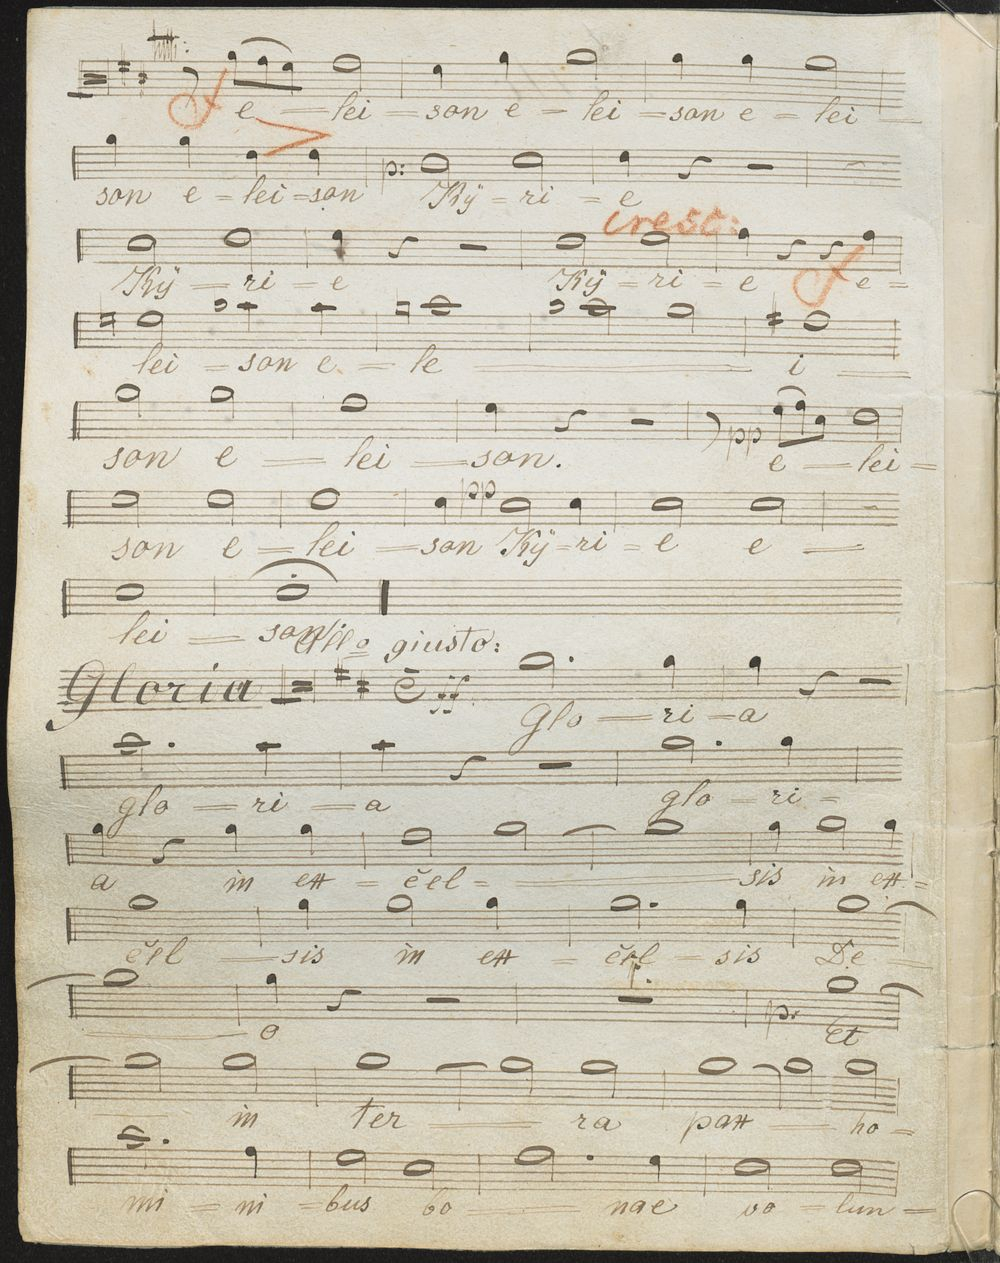 f e – lei – son e – lei – son e – lei –
son e – lei – son p: Kÿ – ri – e
cresc:
Kÿ – ri – e Kÿ – ri – e f e –
lei – son e – le – i –
son e – lei – son. pp e – lei –
son e – lei – son pp Kÿ – ri – e e –
lei – son.
All⁰ giusto:
Gloria ff Glo – ri – a
glo – ri – a glo – ri –
a in ex – čel – sis in ex –
čel – sis in ex – čel – sis De –
o p. Et
in ter – ra pax ho –
mi – ni – bus bo – nae vo – lun –